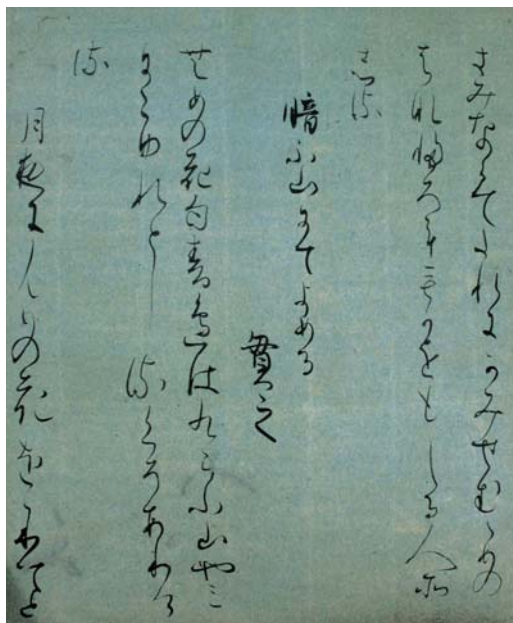 きみならてたれにかみせむゝめの
はないろをもかをもしる人そ
しる
暗ふ山にてよめる
貫之
むめの花匂春邊はくらふ山やみ
にこゆれとしるくそありけ
る
月夜にむめの花ををりてと